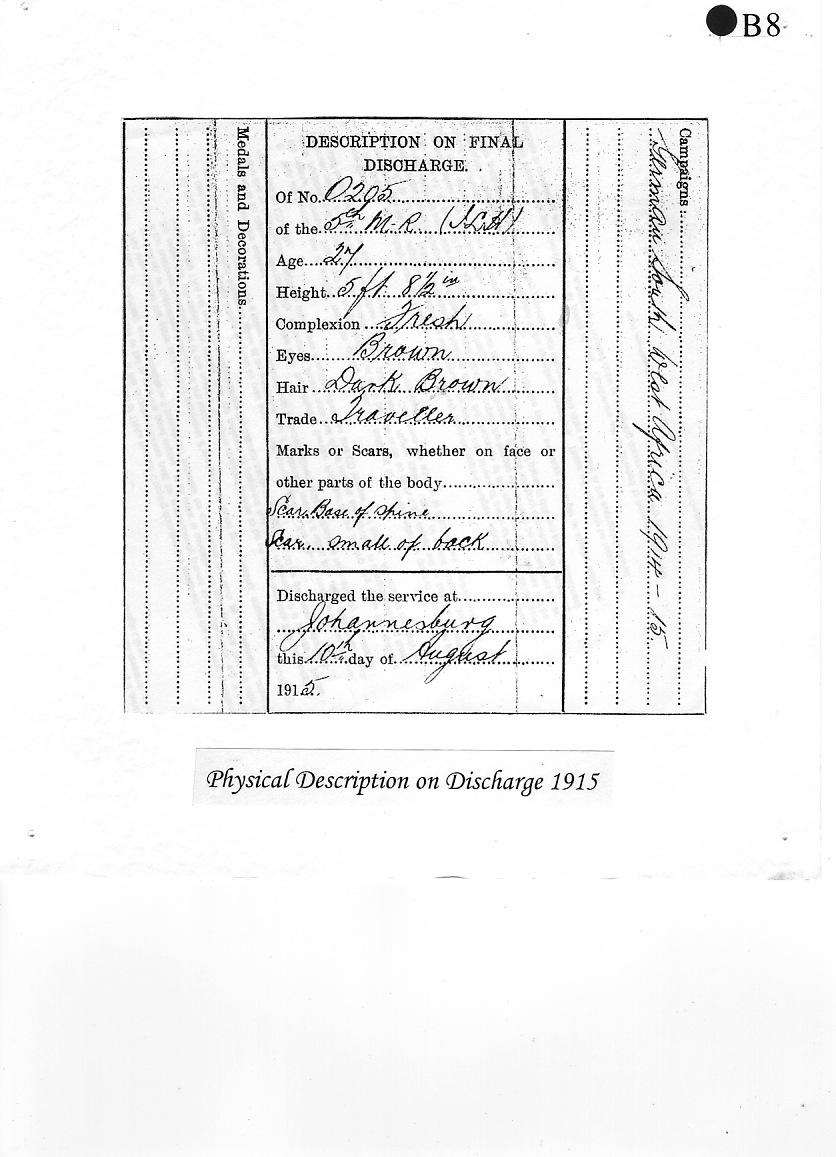 B8
Medals and Decorations.
DESCRIPTION ON FINAL
DISCHARGE.
Of No. 0205
of the 5th M.R. (I.L.H)
Age 27
Height 5 ft 8½ in
Complexion Fresh
Eyes Brown
Hair Dark Brown
Trade Traveller
Marks or Scars, whether on face or
other parts of the body
Scar. Base of spine
Scar. small of back
Discharged the service at
Johannesburg
this 10th day of August
1915.
Campaigns:
German South West Africa 1914-15.
Physical Description on Discharge 1915